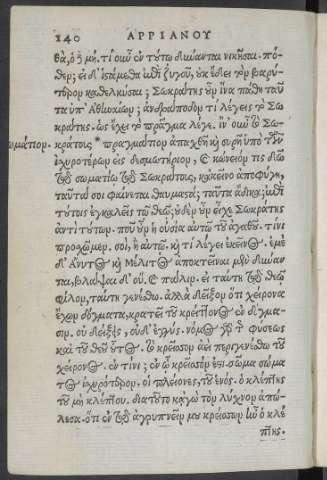 240 ΑΡΡΙΑΝΟΥ
θὰ, ὁ δὲ μή. τί οὖν ἐν τούτῳ δύνανται νικῆσαι. πό-
θεν; εἰ δ' ἱστάμεθα ἐπὶ ζυγοῦ, οὐκ ἔδει τὸν βαρύ-
τερον καθελκύσαι; Σωκράτης οὖν ἵνα πάθῃ ταῦ-
τα ὑπ' Ἀθηναίων; ἀνδράποδον τί λέγεις τὸ Σω-
κράτης. ὡς ἔχει τὸ πρᾶγμα λέγε. ἵν' οὖν τὸ Σω-
ωμάτιον. κράτους πραγμάτιον ἀπαχθῇ καὶ συρῇ ὑπὸ τῶν
ἰσχυροτέρων εἰς δεσμωτήριον, καὶ κώνειόν τις δῷ
τῷ σωματίῳ τῷ Σωκράτους, κἀκεῖνο ἀποψυγῇ,
ταῦτά σοι φαίνεται θαυμαστά; ταῦτα ἄδικα; ἐπὶ
τούτοις ἐγκαλεῖς τῷ θεῷ; οὐδὲν οὖν εἶχε Σωκράτης
ἀντὶ τούτων. ποῦ ἦν ἡ οὐσία αὐτῷ τοῦ ἀγαθοῦ. τίνι
προσχῶμεν. σοὶ, ἢ αὐτῷ. καὶ τί λέγει ἐκεῖνος. ἐμὲ
δ' Ἄνυτος καὶ Μέλιτος ἀποκτεῖναι μὲν δύναν-
ται, βλάψαι δ' οὔ. καὶ πάλιν. εἰ ταύτῃ τῷ θεῷ
φίλον, ταύτῃ γενέσθω. ἀλλὰ δεῖξον ὅτι χείρονα
ἔχων δόγματα, κρατεῖ τοῦ κρείττονος ἐν δόγμα-
σιν. οὐ δείξεις, οὐδ' ἐγγύς. νόμος γὰρ τῆς φύσεως
καὶ τοῦ θεοῦ οὗτος. τὸ κρεῖσσον ἀεὶ περιγενέσθω τοῦ
χείρονος. ἐν τίνι; ἐν ᾧ κρεῖσσόν ἐστι. σῶμα σώμα-
τος ἰσχυρότερον. οἱ πλείονες, τοῦ ἑνός. ὁ κλέπτης
τοῦ μὴ κλέπτου. διὰ τοῦτο κἀγὼ τὸν λύχνον ἀπώ-
λεσα. ὅτι ἐν τῷ ἀγρυπνεῖν μου κρείσσων ἦν ὁ κλέ
πτης.